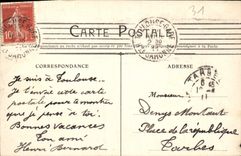 31
CARTE POSTALE
CORRESPONDANCE
ADRESSE
Je suis à Toulouse
je t'envoie cette carte
postale pour te montrer
que je pense à toi.
Bonnes Vacances
Ton ami
Henri Bernard
Monsieur
Denys Montaut
Place de la république
Tarbes